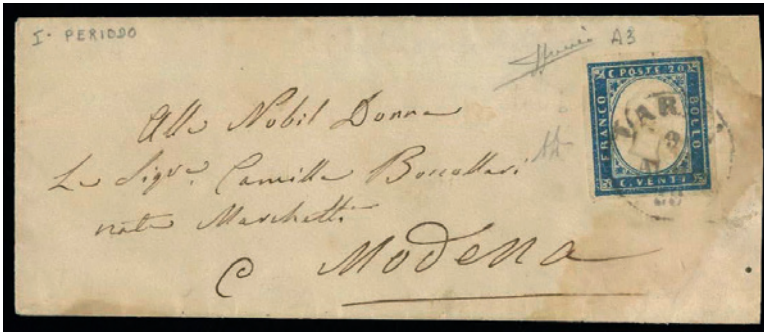 I. PERIODO
A3
C. POSTE 20
FRANCO
BOLLO
C. VENTI
Alla Nobil Donna
La Sigra. Camilla Boscollari
nata Marchetti
Modena